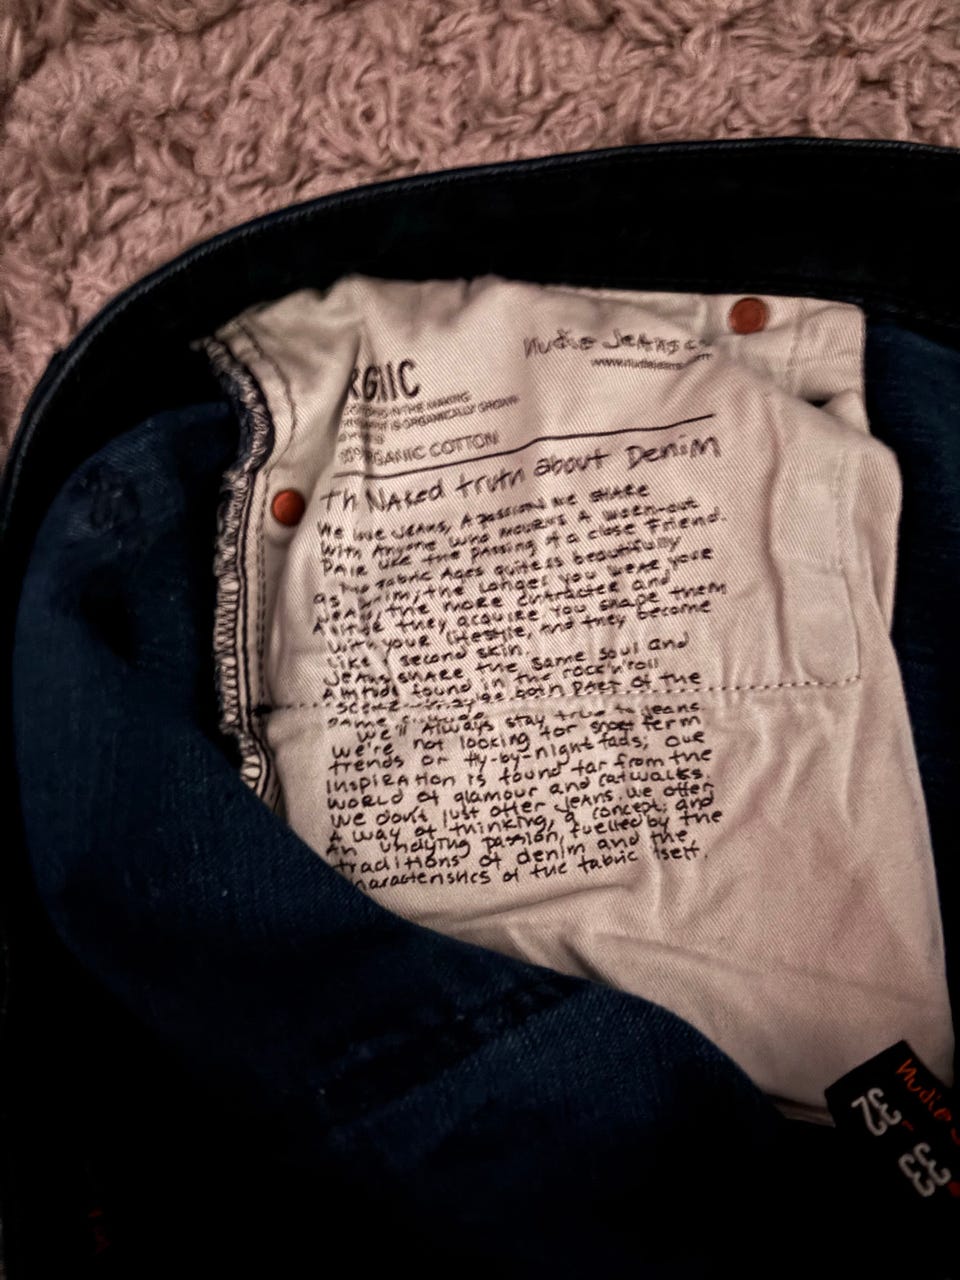 Nudie Jeans co
www.nudiejeans.com
RGNIC
IS ORGANICALLY GROWN
RGANIC COTTON
Th Naked truth about Denim
We love Jeans, A passion we share
With Anyone who mourns A worn-out
PAIR like the passing of a close friend.
Fabric Ages quite as beautifully
as the longer you wear your
the more character and
they acquire. You shape them
with your lifestyle, And they become
like second skin.
Jeans share the same soul and
found in the rock'n'roll
both PART of the
same
We'll Always stay true to jeans
We're not looking for short term
trends or fly-by-night fads; our
InspiRAtion is found far from the
WORLD of glamour and catwalks.
We don't Just offer Jeans. We offer
A way of thinking, a concept; and
An undying passion, fuelled by the
traditions of denim and the
haracteristics of the fabric itself.
Nudie
32
33